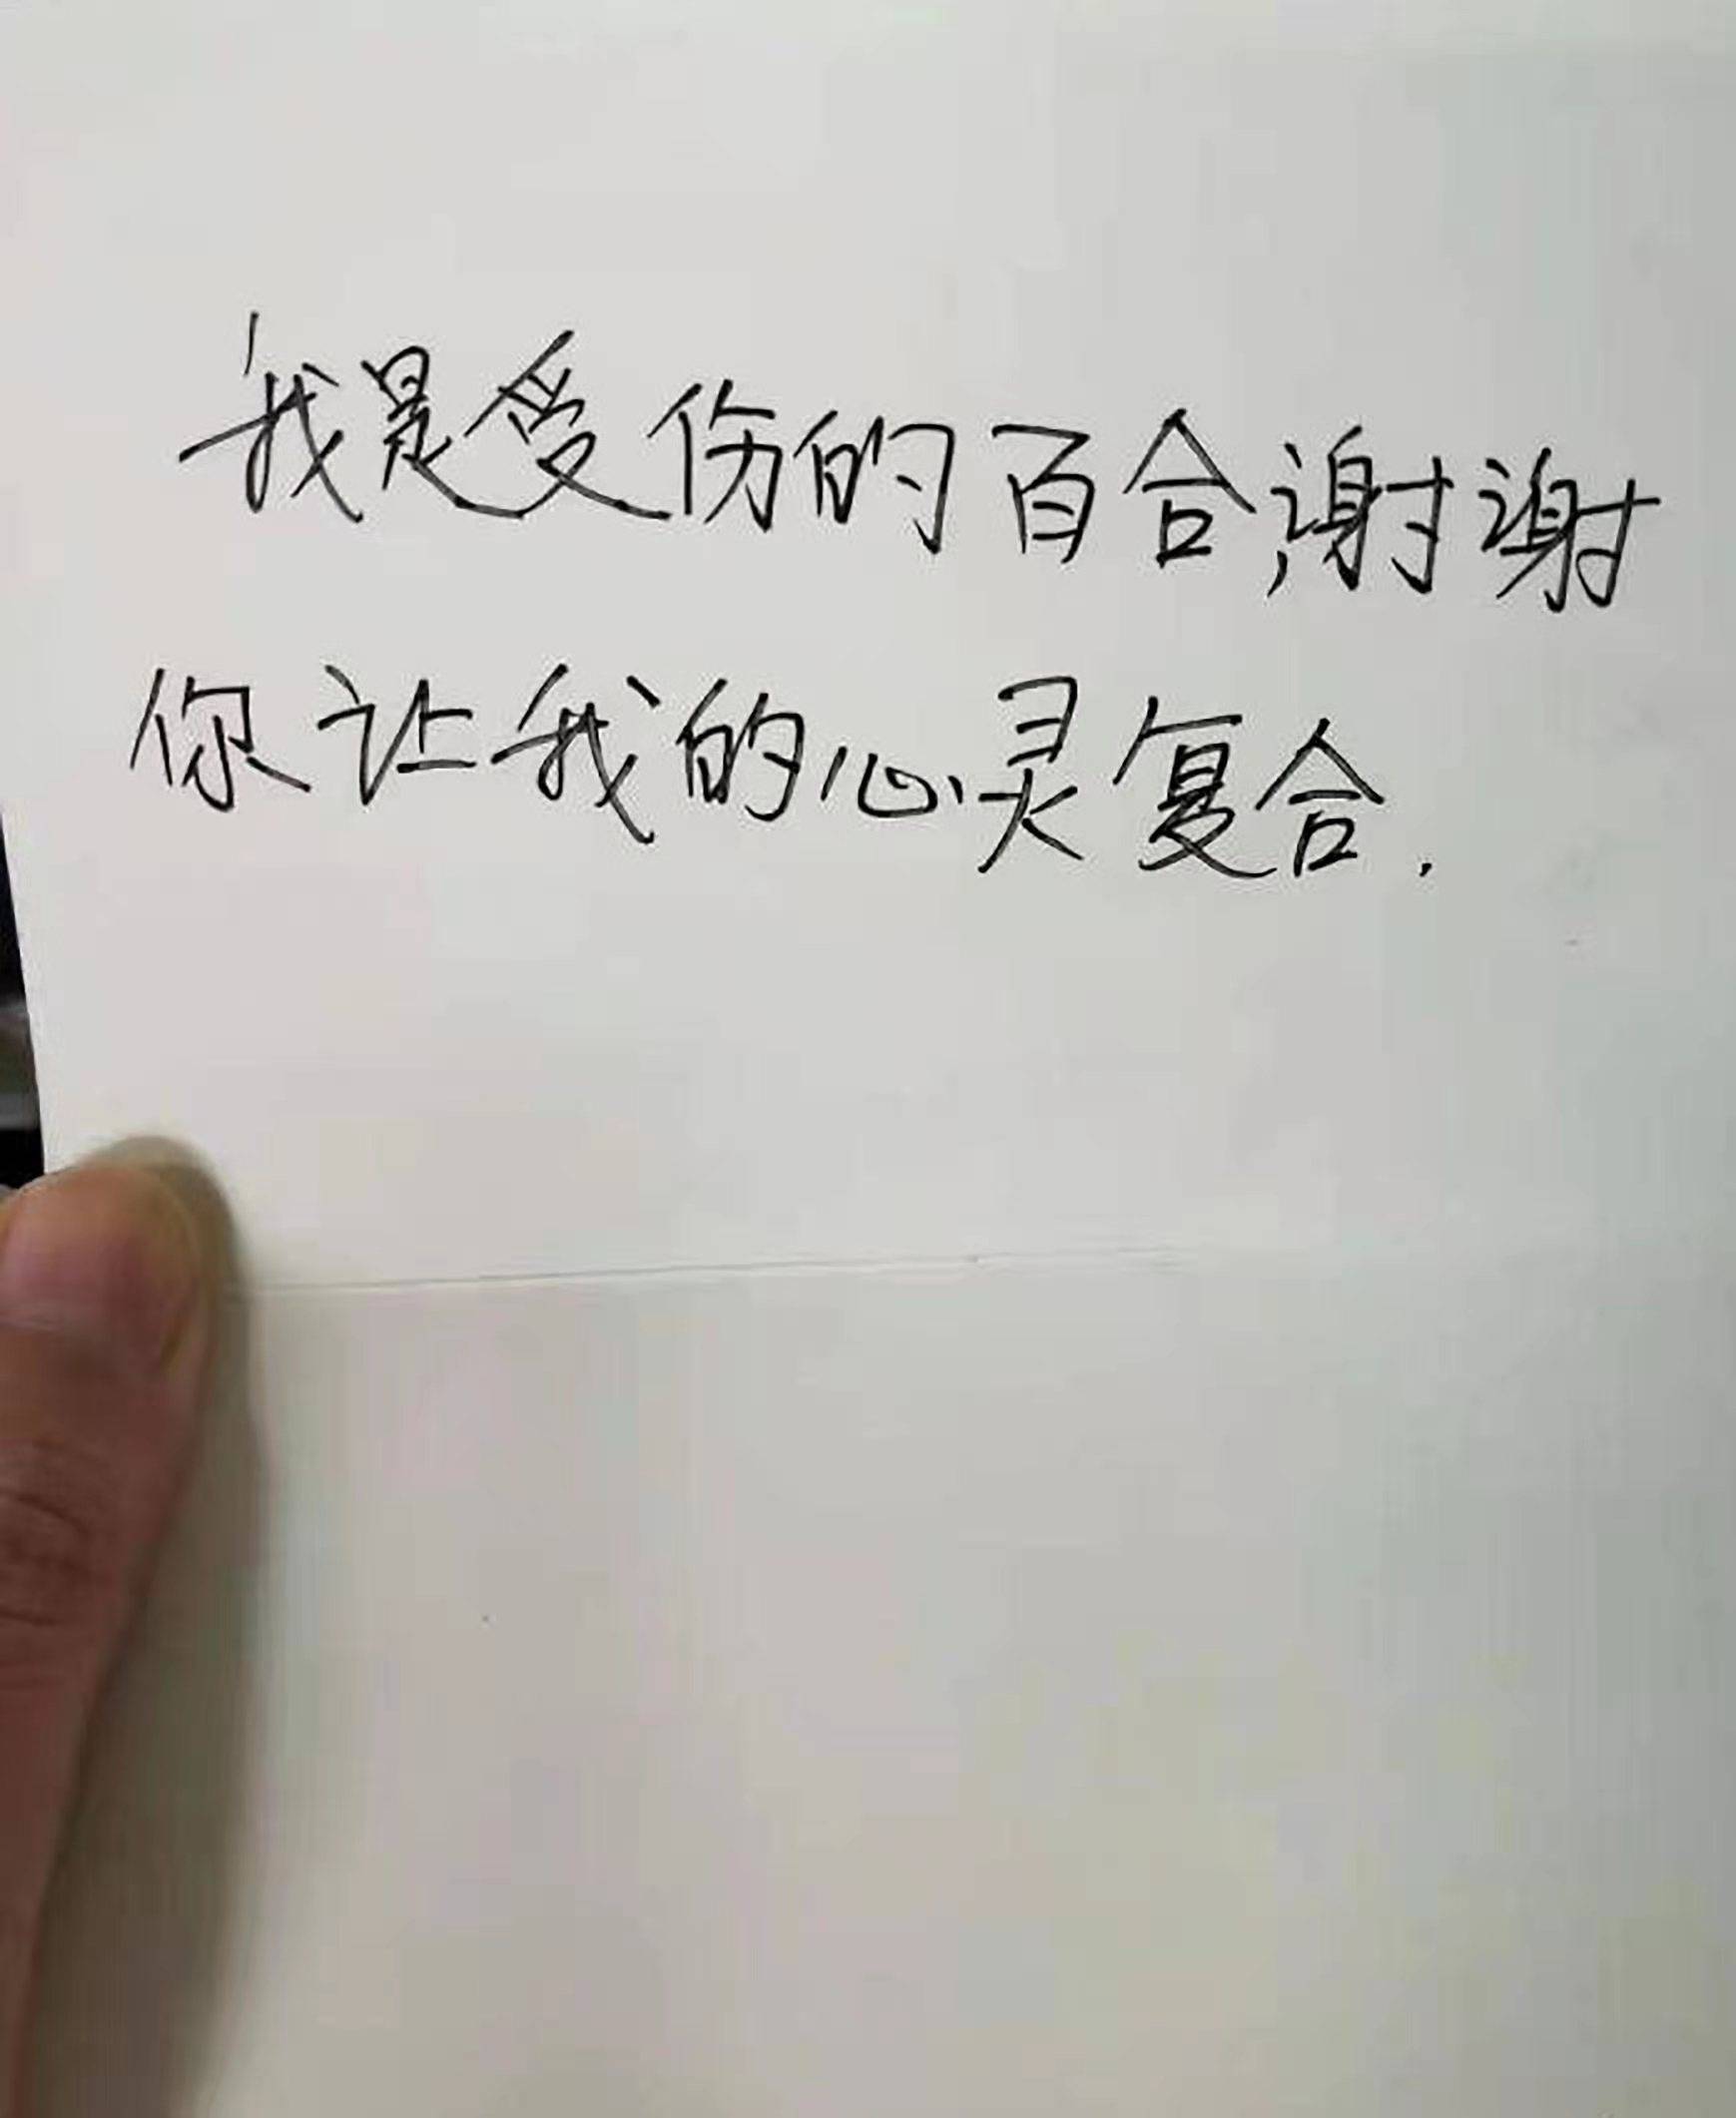 我是受伤的百合,谢谢
你让我的心灵复合.